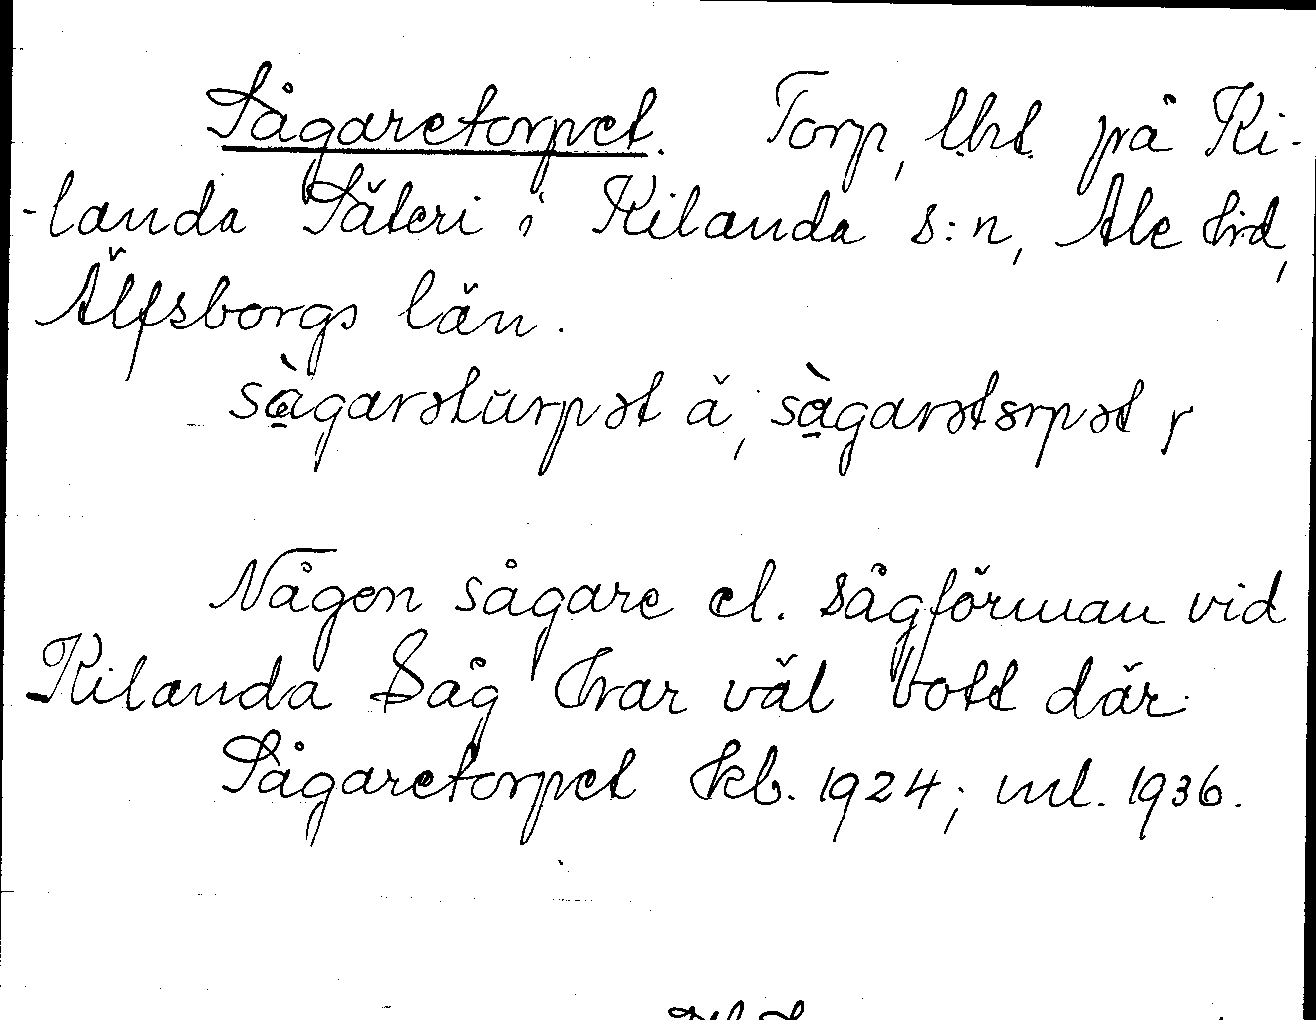 Sågaretorpet. Torp, lht. på Ki-
-landa Säteri i Kilanda s:n, Ale hd,
Älfsborgs län.
Någon sågare el. sågförman vid
Kilanda Såg har väl bott där.
Sågaretorpet kb. 1924; ml. 1936.